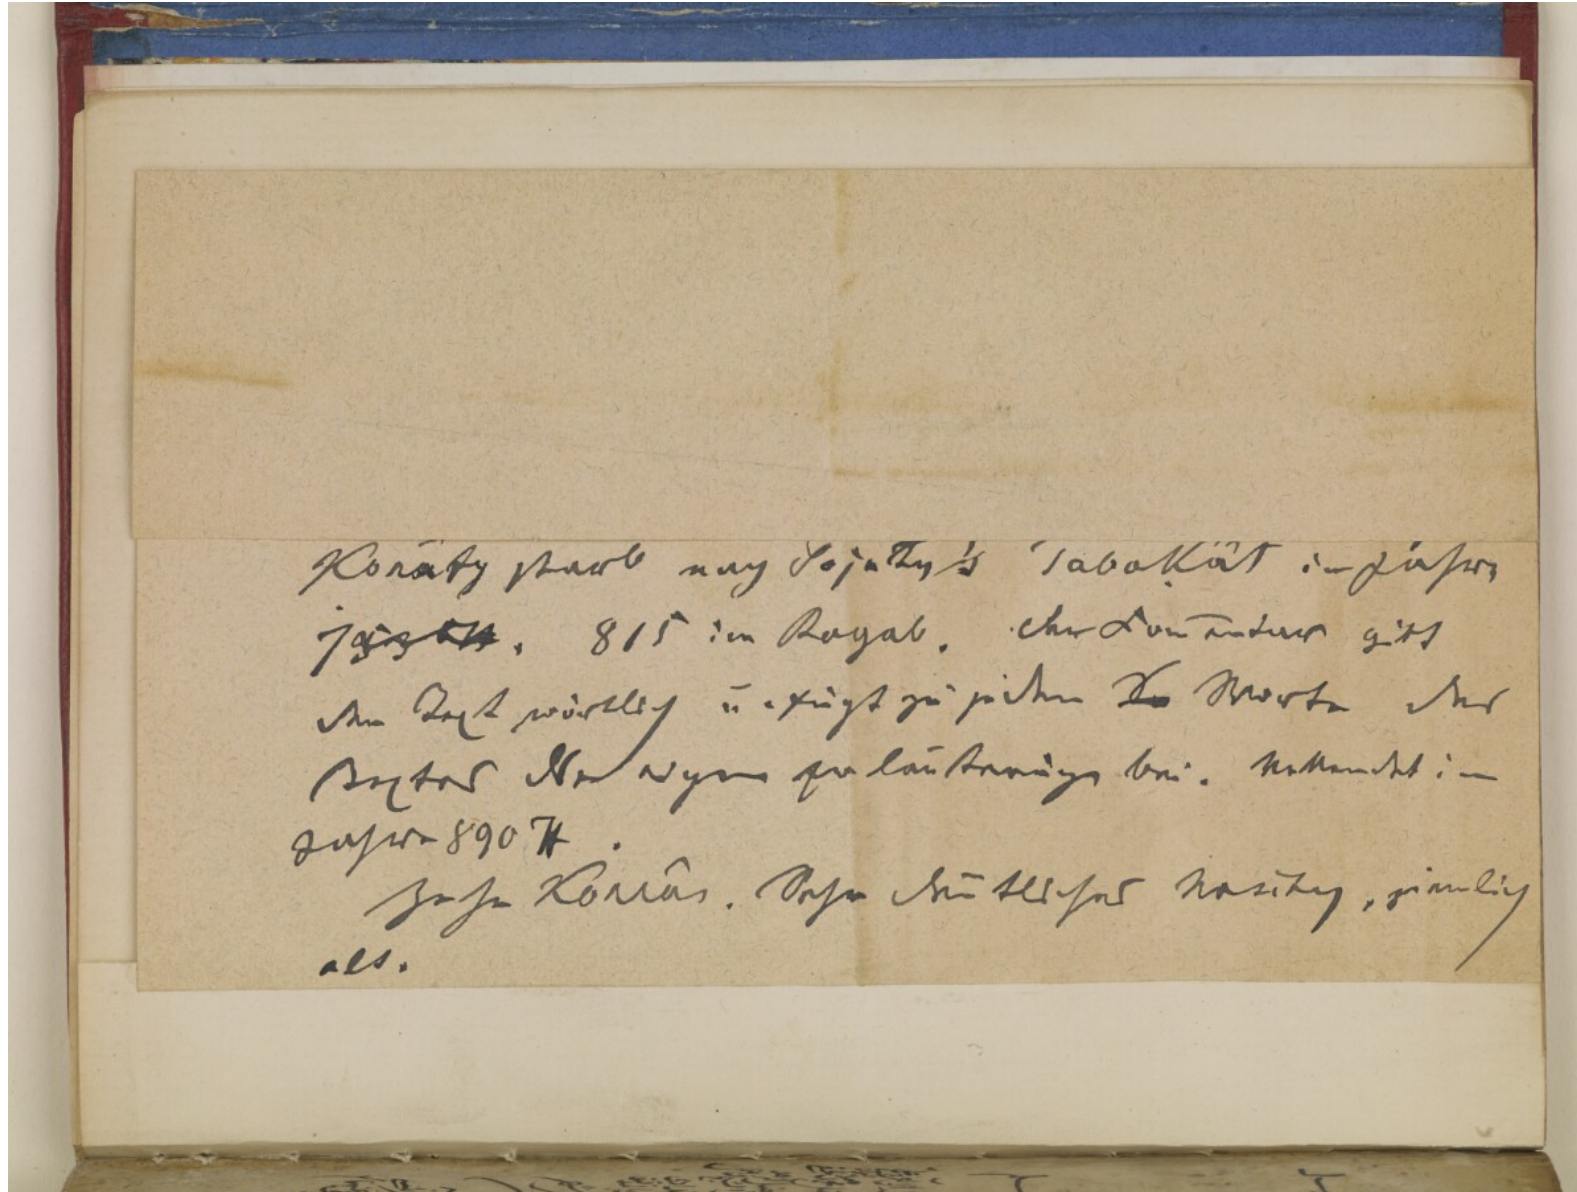 Konäty starb nach Sojuty's Tabakât im Jahre
815 im Ragab. Der Comentar gibt
den Text wörtlich u. fügt zu jedem Worte des
Textes Erläuterunge bei. Vollendet im
Jahre 890 H.
Zehn Korrâs. Sehr deutliches Naschy, ziemlich
alt.